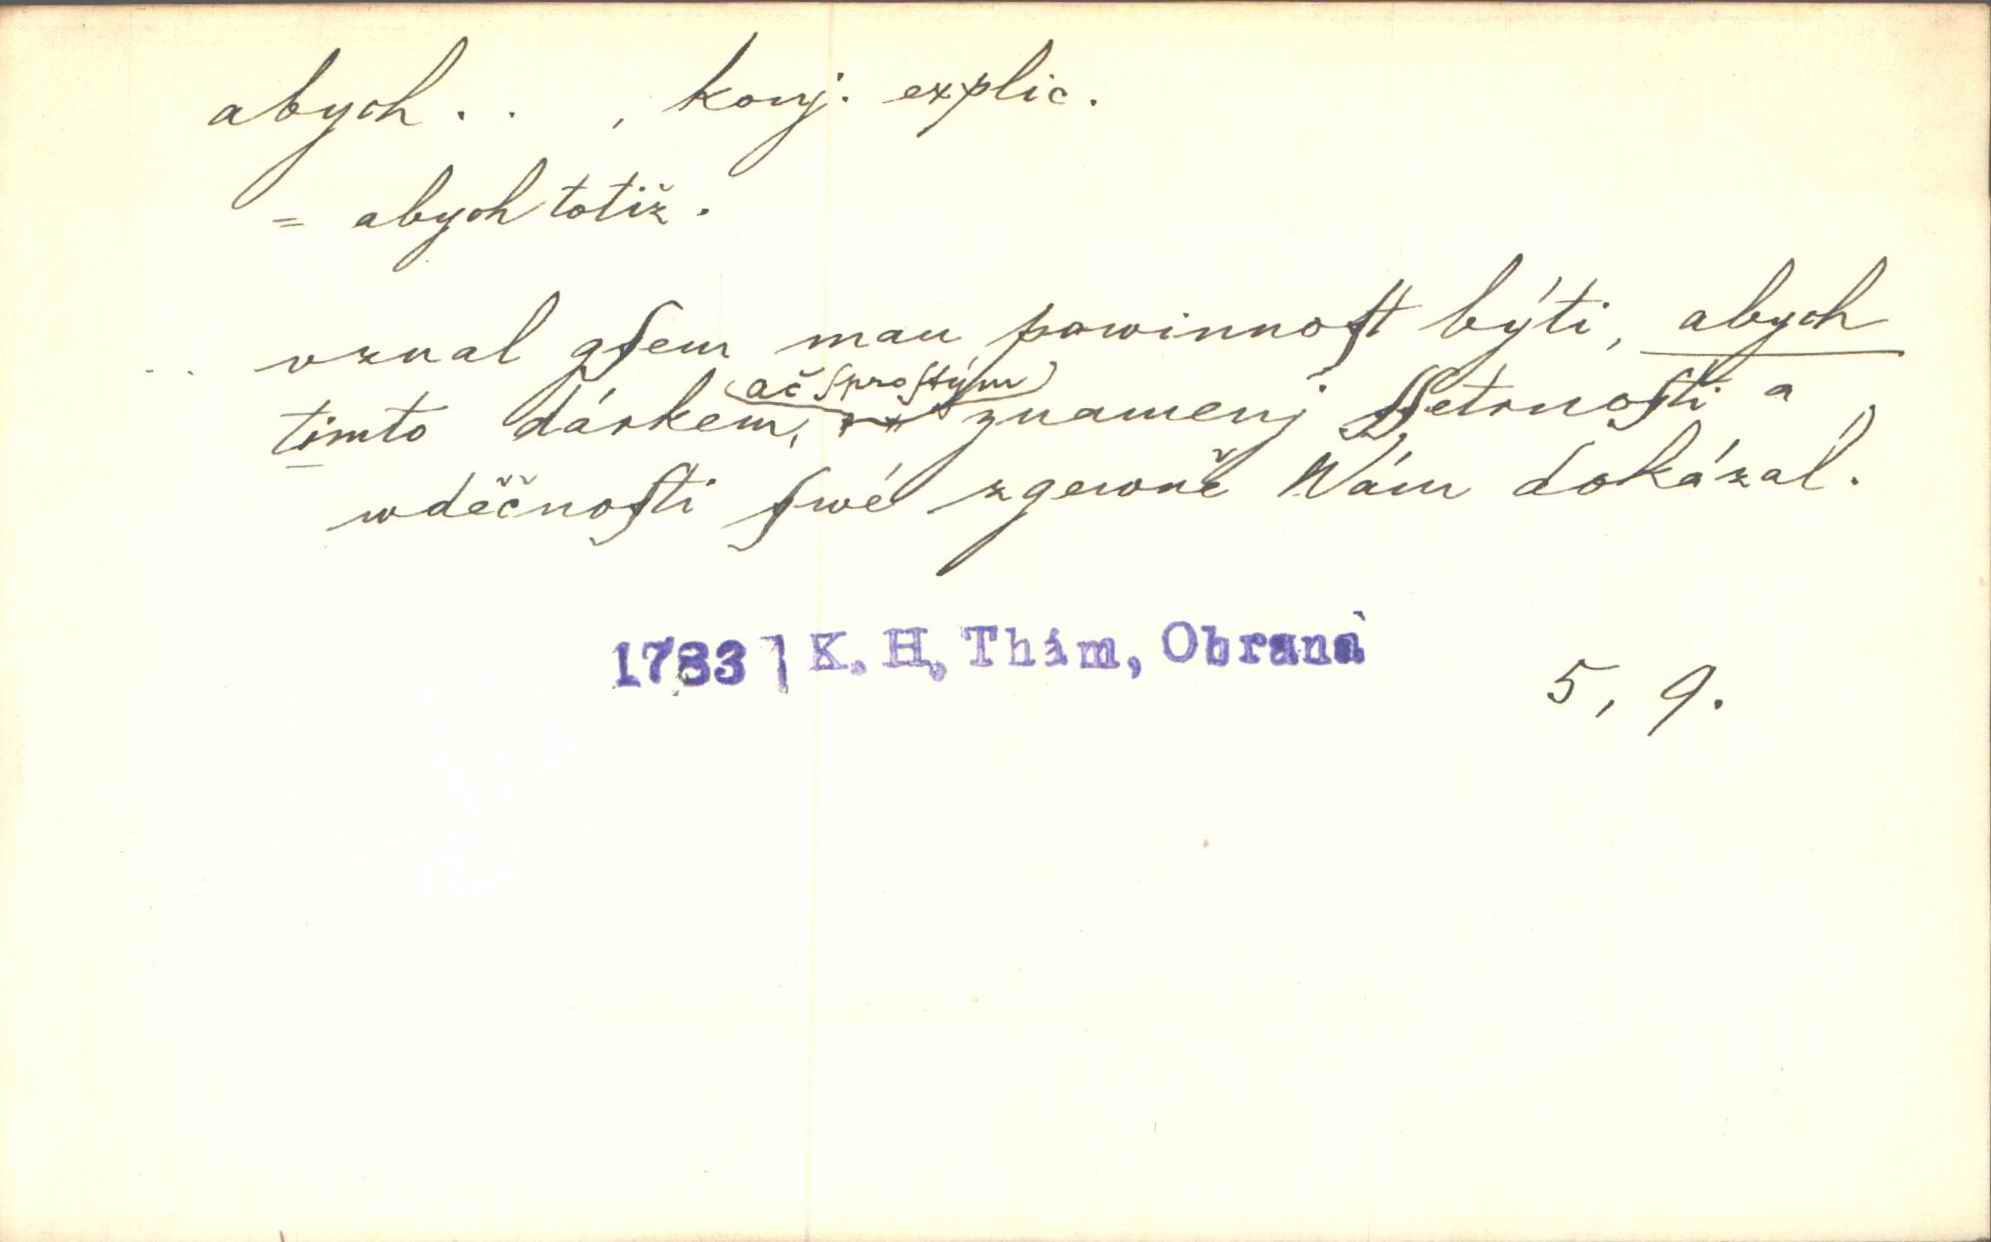 abych . . , konj. explic.
= abych totiž.
.. vznal gſem mau powinnoſt býti, abych
tímto dárkem, (ač ſproſtým) znamenj ſſetrnoſti a
wděčnoſti ſwé zgewně Wám dokázal.
1783 / K. H. Thám, Obrana
5, 9.